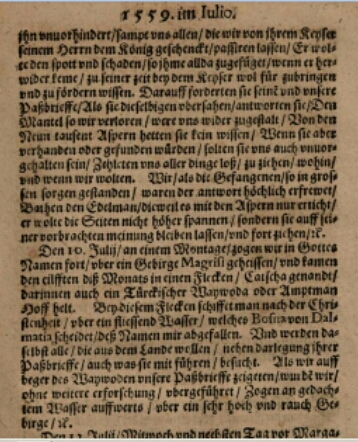 1559. im Iulio.
jhn vnuorhindert/sampt vns allen/ die wir von jhrem Keyser
seinem Herrn dem König geschenckt/passiren lassen/ Er wol-
te den spott vnd schaden/so jhme allda zugefüget/wenn er her-
wider keme/zu seiner zeit bey dem Keyser wol für zubringen
vnd zu fördern wissen. Darauff forderten sie seine vnd vnsere
Paßbrieffe/Als sie dieselbigen vbersahen/antworten sie/Den
Mantel so wir verloren/ were vns wider zugestalt/ Von den
Neun tausent Aspern hetten sie kein wissen/ Wenn sie aber
verhanden oder gefunden würden/ solten sie vns auch vnuor-
gehalten sein/ Zehleten vns aller dinge loß/ zu ziehen/ wohin/
vnd wenn wir wolten. Wir/als die Gefangenen/so in gros-
sen sorgen gestanden/ waren der antwort höchlich erfrewet/
Bathen den Edelman/dieweil es mit den Aspern nur erticht/
er wolte die Seiten nicht höher spannen/ sondern sie auff jei-
ner vorbrachten meinung bleiben lassen/vnd fort ziehen/ꝛc.
Den 10. Julij/ an einem Montage/zogen wir in Gottes
Namen fort/ vber ein Gebirge Magrisi geheissen/ vnd kamen
den eilfften diß Monats in einen Flecken/ Catscha genandt/
darinnen auch ein Türckischer Waywoda oder Amptman
Hoff helt. Bey diesem Flecken schiffet man nach der Chri-
stenheit/ vber ein fliessend Wasser/ welches Bosna von Dal-
matia scheidet/deß Namen mir abgefallen. Vnd werden da-
selbst alle/ die aus dem Lande wellen/ neben darlegung jhrer
Paßbrieffe/ auch was sie mit führen/ besucht. Als wir auff
beger des Waywoden vnsere Paßbrieffe zeigeten/wurdē wir/
ohne weitere erforschung/ vbergeführet/ Zogen an gedach-
tem Wasser auffwerts/ vber ein sehr hoch vnd rauch Ge-
birge/ ꝛc.
Den 12 Julij/Mitwoch vnd nechsten Tag vor Marga-